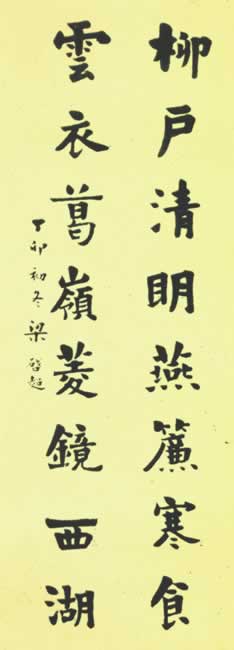 柳戶清明燕簾寒食
雲衣葛嶺菱鏡西湖
丁卯初冬梁啓超